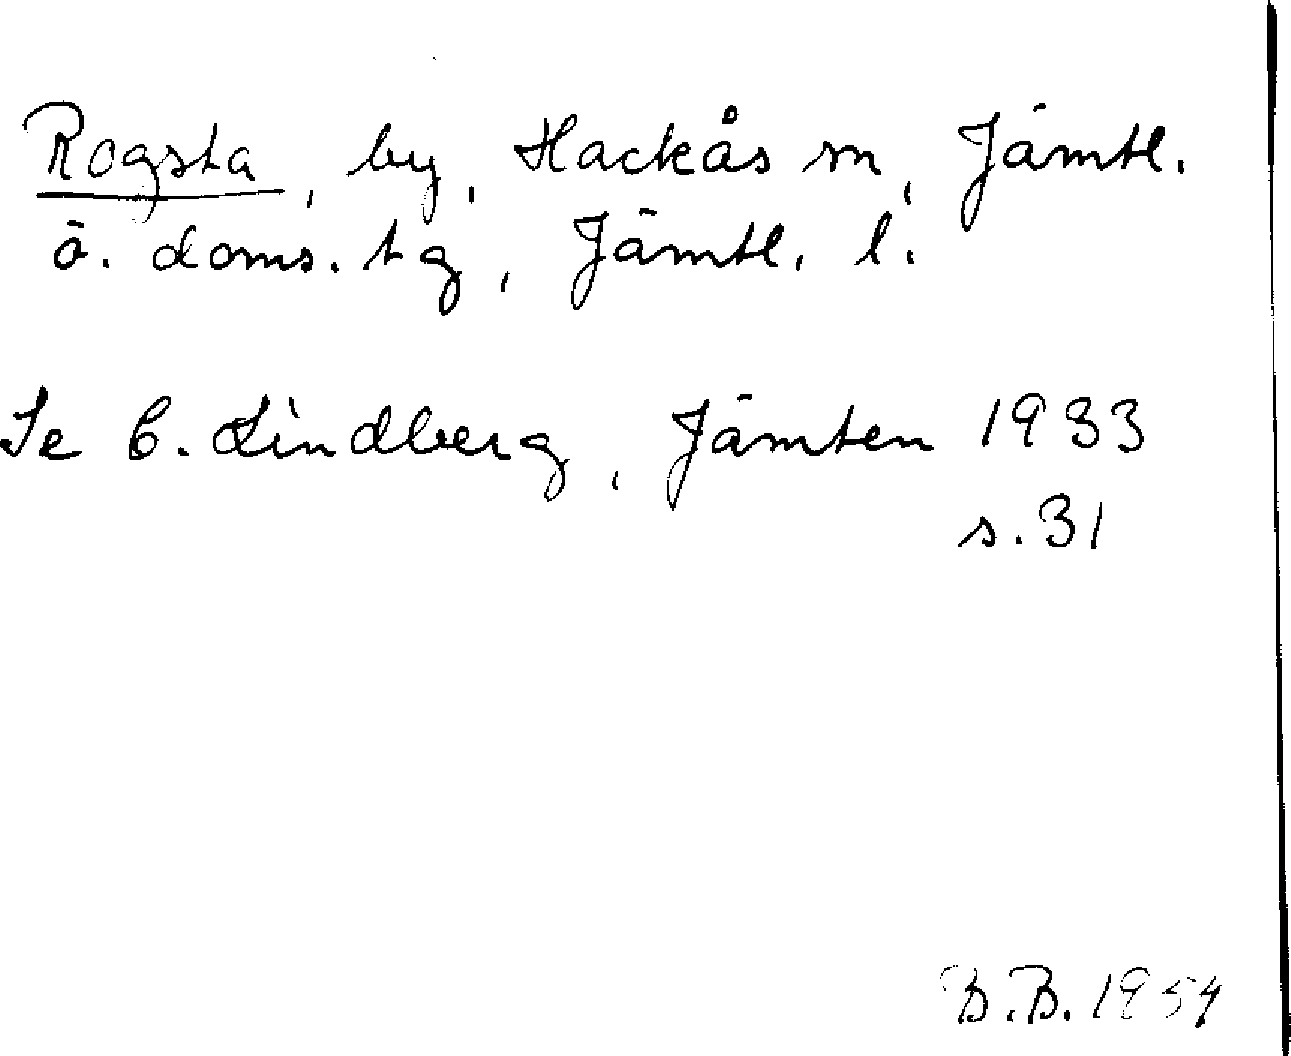 Rogsta, by, Hackås sn, Jämtl.
ö. doms. tg, Jämtl. l.
Se C. Lindberg, Jämten 1933
s. 31
B.B. 1954